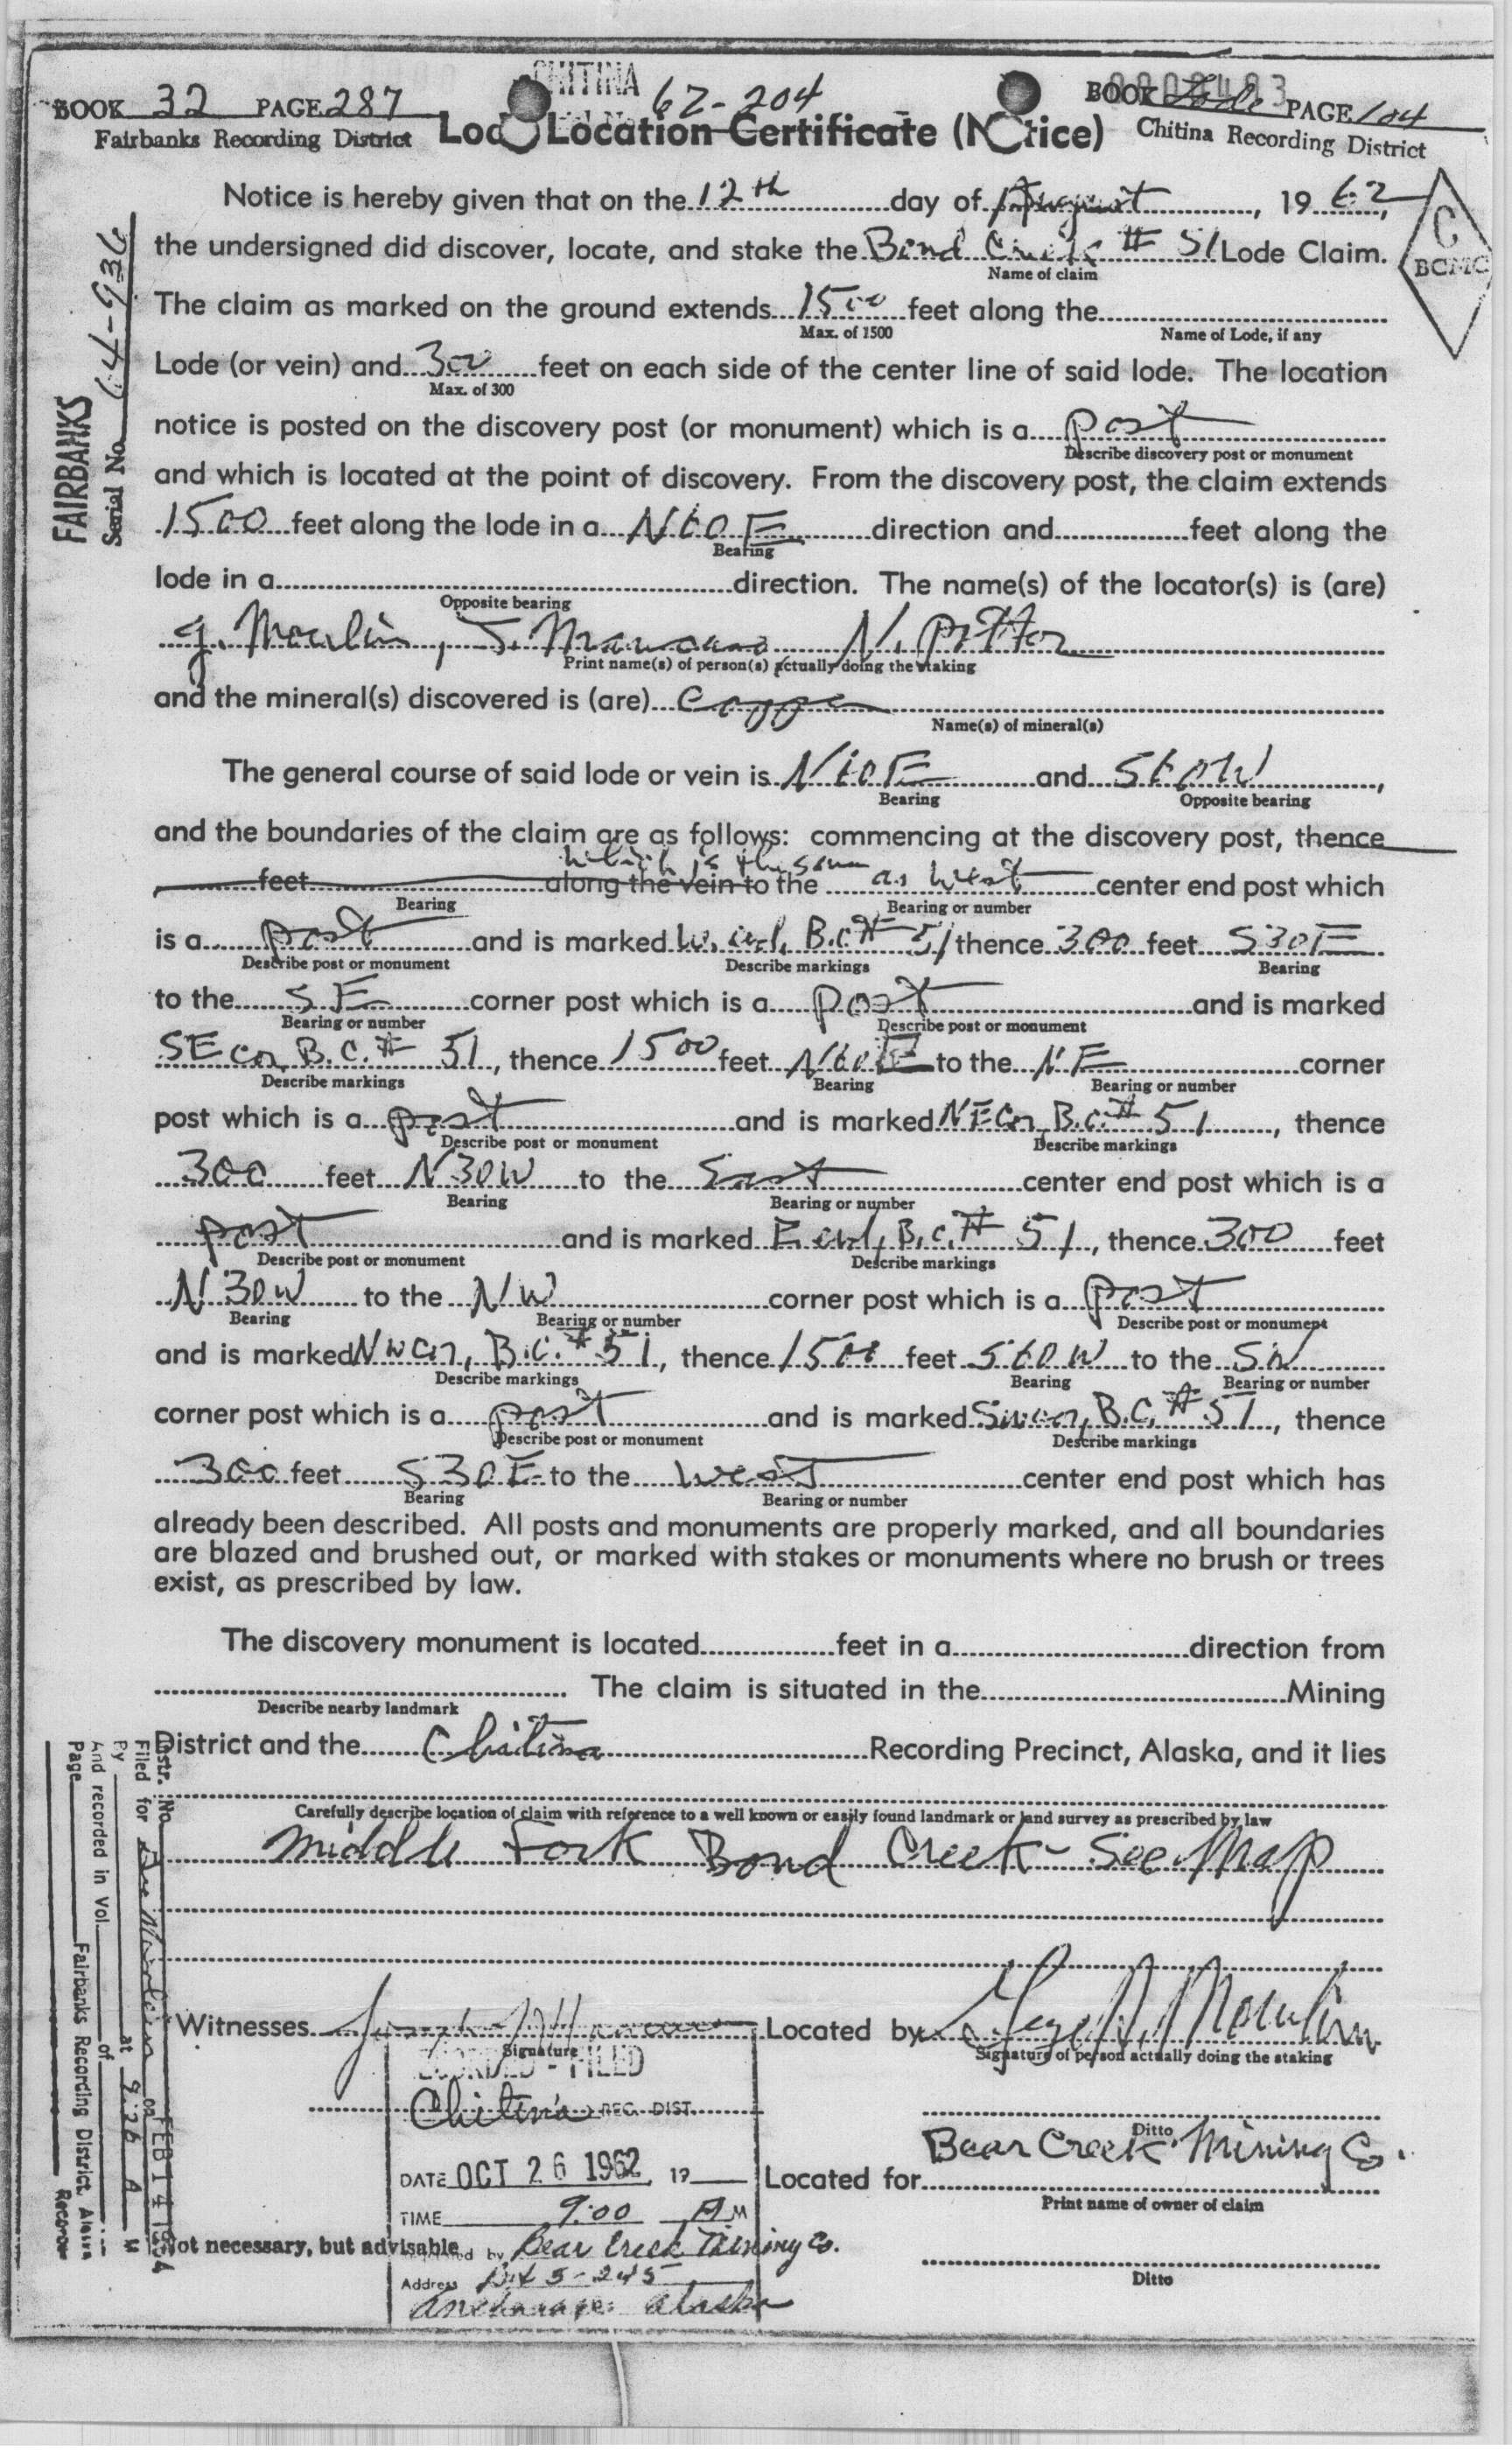 CHITINA
62-204
BOOK 32 PAGE 287
Fairbanks Recording District
BOOK Lode PAGE 104
Chitina Recording District
Lode Location Certificate (Notice)
C
BCMC
FAIRBANKS
Serial No. 64-936
Notice is hereby given that on the 12th day of August, 1962,
the undersigned did discover, locate, and stake the Bond Creek # 51 Lode Claim.
Name of claim
The claim as marked on the ground extends 1500 feet along the
Max. of 1500 Name of Lode, if any
Lode (or vein) and 300 feet on each side of the center line of said lode. The location
Max. of 300
notice is posted on the discovery post (or monument) which is a post
Describe discovery post or monument
and which is located at the point of discovery. From the discovery post, the claim extends
1500 feet along the lode in a N60E direction and feet along the
Bearing
lode in a direction. The name(s) of the locator(s) is (are)
Opposite bearing
J. Moulin, J. N. Pittor
Print name(s) of person(s) actually doing the staking
and the mineral(s) discovered is (are) Copper
Name(s) of mineral(s)
The general course of said lode or vein is N60E and S60W,
Bearing Opposite bearing
and the boundaries of the claim are as follows: commencing at the discovery post, thence
which is the same
feet along the vein to the as West center end post which
Bearing Bearing or number
is a post and is marked W. end, B.C.# 51 thence 300 feet S30E
Describe post or monument Describe markings Bearing
to the SE corner post which is a post and is marked
Bearing or number Describe post or monument
SE cor, B.C.# 51, thence 1500 feet N60E to the NE corner
Describe markings Bearing Bearing or number
post which is a post and is marked NE Cor, B.C.# 51, thence
Describe post or monument Describe markings
300 feet N30W to the East center end post which is a
Bearing Bearing or number
post and is marked E end, B.C.# 51, thence 300 feet
Describe post or monument Describe markings
N30W to the NW corner post which is a post
Bearing Bearing or number Describe post or monument
and is marked NW cor, B.C.# 51, thence 1500 feet S60W to the SW
Describe markings Bearing Bearing or number
corner post which is a post and is marked SW cor, B.C.# 51, thence
Describe post or monument Describe markings
300 feet S30E to the West center end post which has
Bearing Bearing or number
already been described. All posts and monuments are properly marked, and all boundaries
are blazed and brushed out, or marked with stakes or monuments where no brush or trees
exist, as prescribed by law.
The discovery monument is located feet in a direction from
The claim is situated in the Mining
Describe nearby landmark
District and the Chitina Recording Precinct, Alaska, and it lies
Carefully describe location of claim with reference to a well known or easily found landmark or land survey as prescribed by law
Middle Fork Bond Creek - See Map
Witnesses Located by
Signature Signature of person actually doing the staking
RECORDED - FILED
Chitina REC. DIST.
Ditto
Bear Creek Mining Co.
DATE OCT 26 1962 19
Located for
Print name of owner of claim
TIME 9:00 AM
Not necessary, but advisable
by Bear Creek Mining Co.
Ditto
Address 5-245
Anchorage, Alaska
Instr. No.
Filed for on FEB 14 1964
By at 9:26 A M
And recorded in Vol. of
Page Fairbanks Recording District, Alaska
Recorder